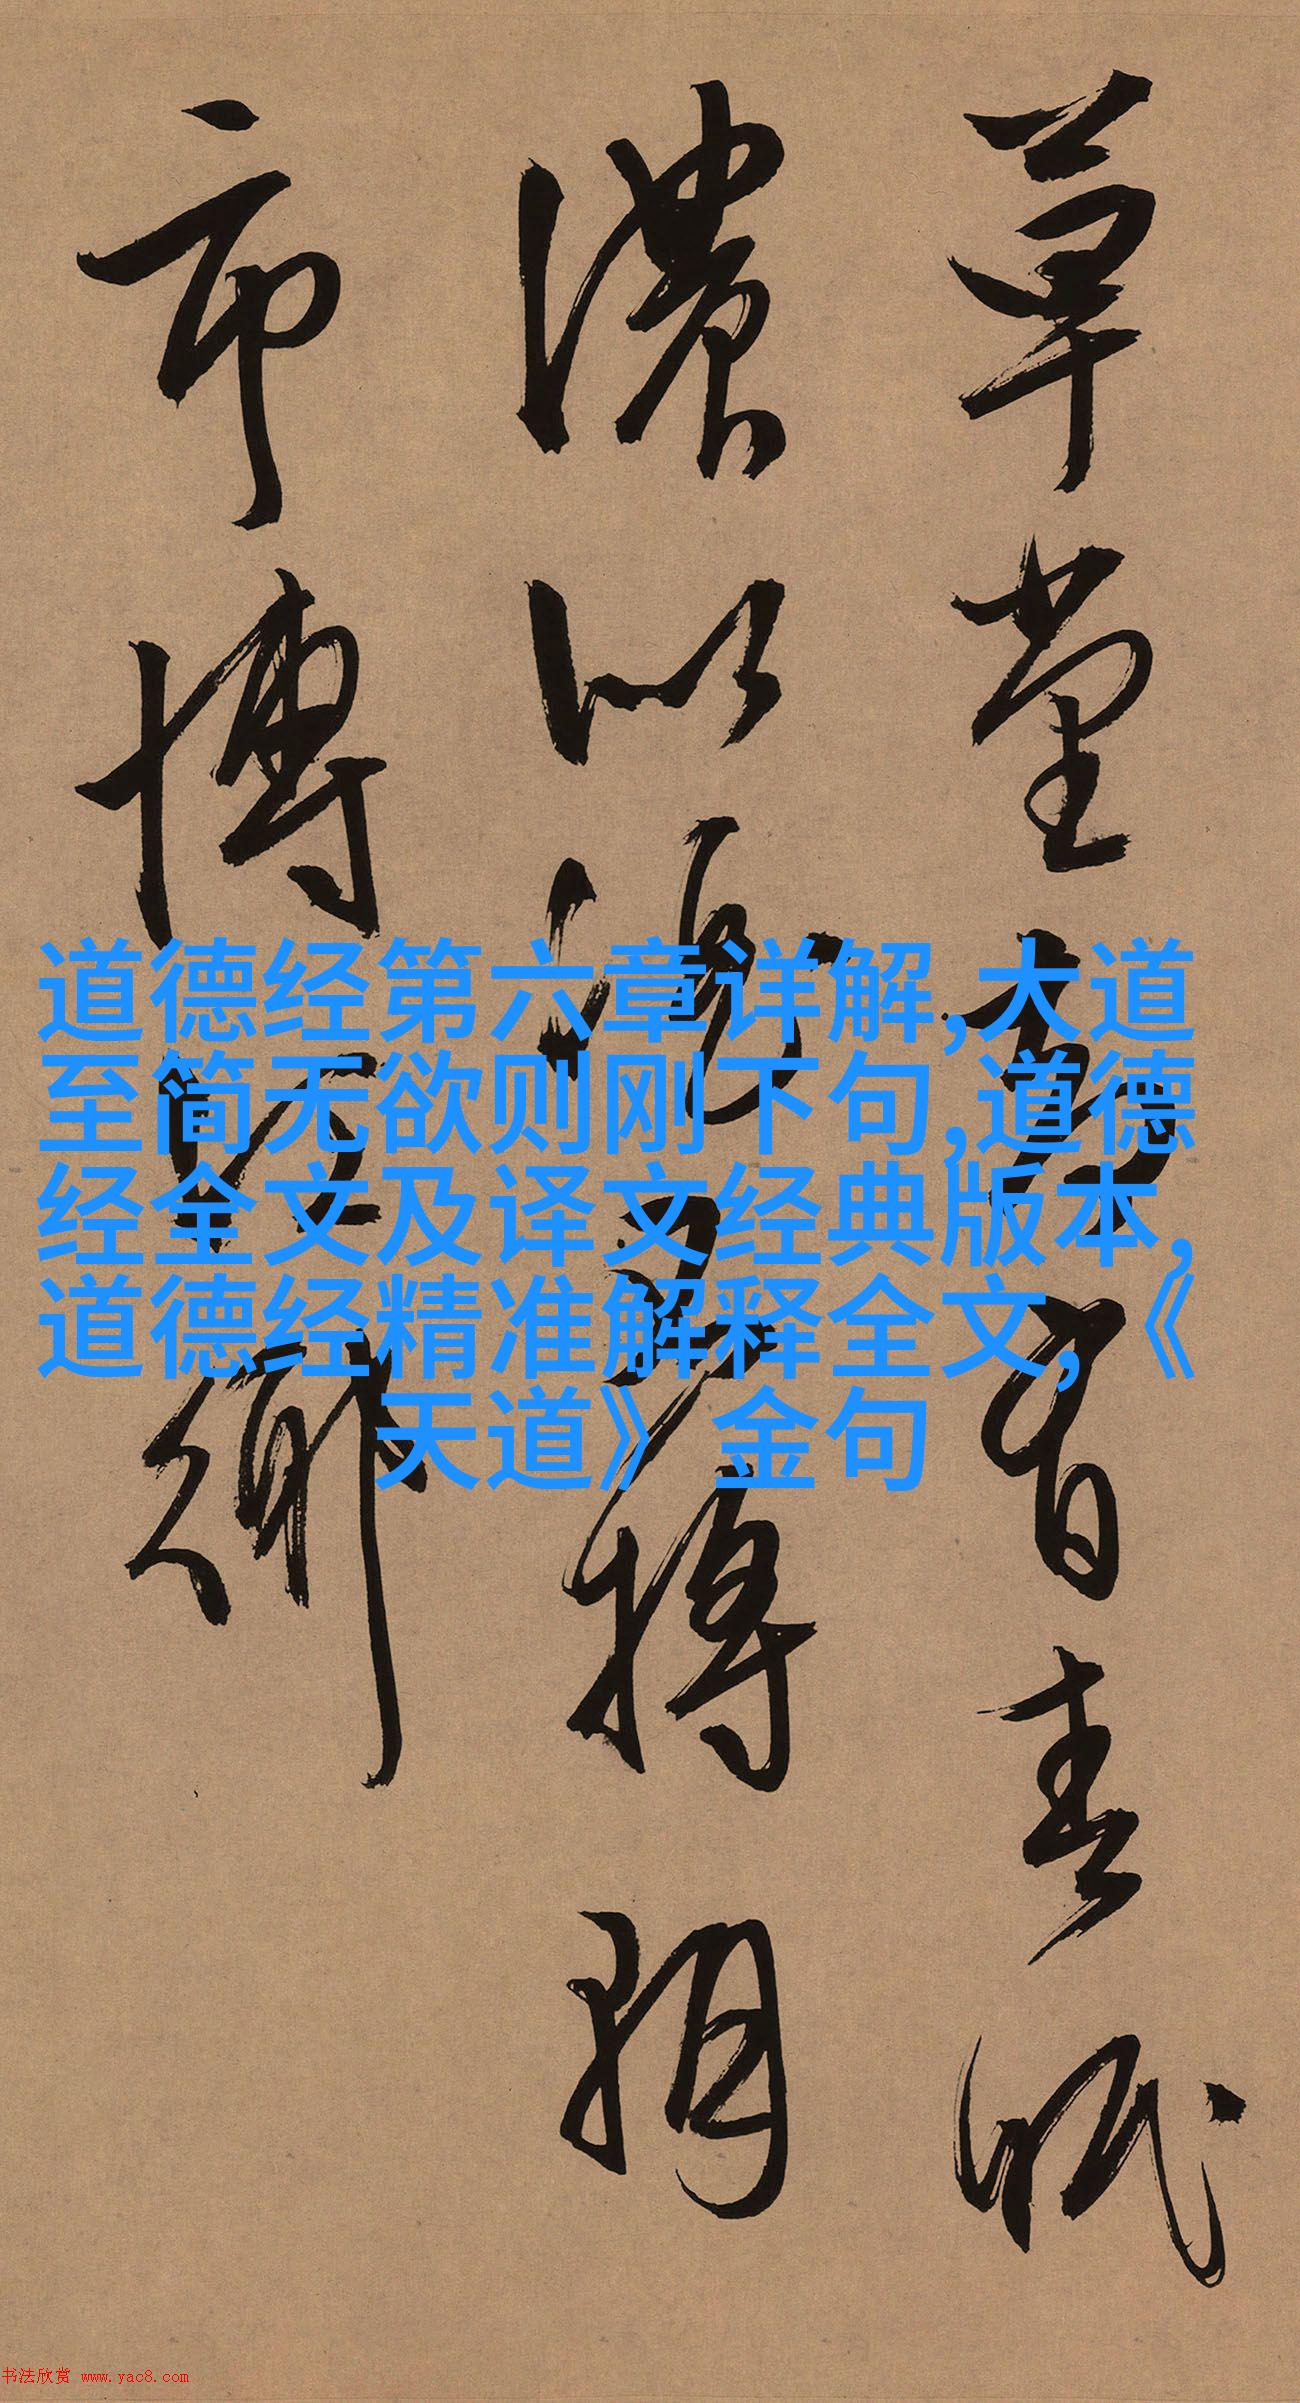 草堂有春眠
濃以將朝
市博鄉
道德经第六章详解,大道
至简无欲则刚下句,道德
经全文及译文经典版本,
道德经精准解释全文,《
天道》金句
书法欣赏 www.yac8.com